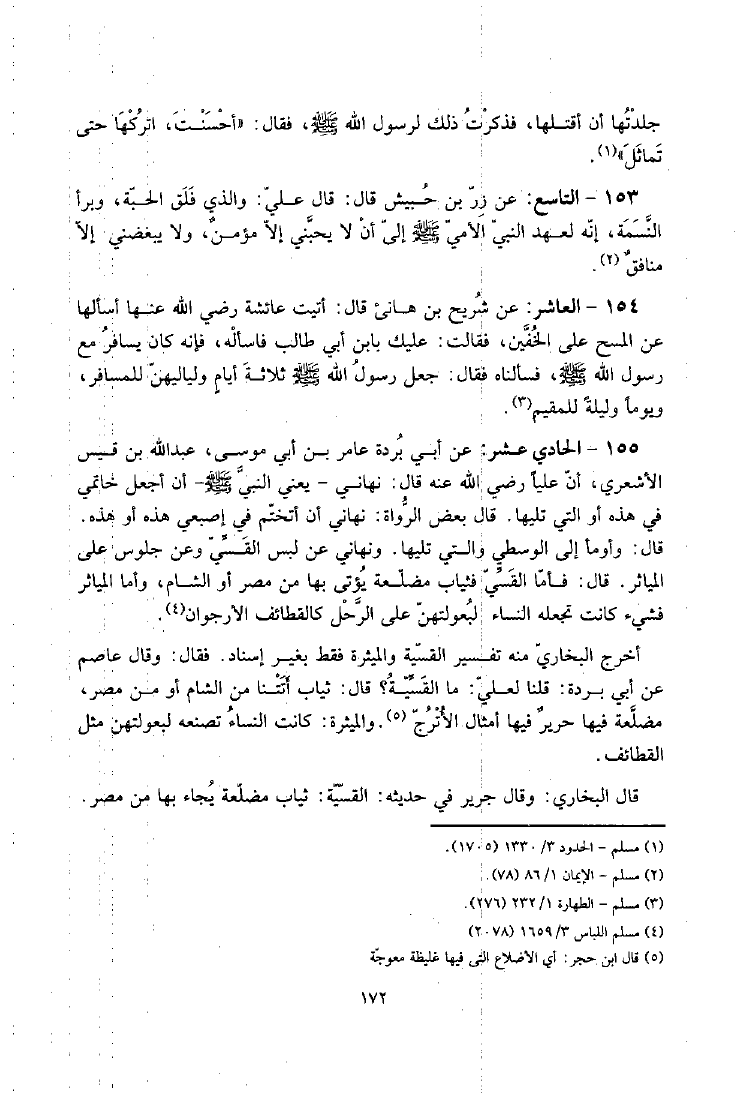 جلدْتُها أن أقتـلـها، فذكرْتُ ذلك لرسول الله ﷺ، فقال: «أحْسَنْـتَ، اتركْهَا حتى
تَماثَلَ»(١).
١٥٣ - التاسع: عن زِرّ بن حُـبيش قال: قال عـليّ: والذي فَلَق الحـبّة، وبرأ
النَّسَمَة، إنّه لعـهد النبيّ الأميّ ﷺ إليّ أنْ لا يحبَّني إلاّ مؤمـنٌ، ولا يبغضني إلاّ
منافقٌ (٢).
١٥٤ - العاشر: عن شُريح بن هـانئ قال: أتيت عائشة رضي الله عنـها أسألها
عن المسح على الخُفَّين، فقالت: عليك بابن أبي طالب فاسألْه، فإنه كان يسافرُ مع
رسول الله ﷺ، فسألناه فقال: جعل رسولُ الله ﷺ ثلاثـةَ أيامٍ ولياليهنّ للمسافر،
ويوماً وليلةً للمقيم(٣).
١٥٥ - الحادي عـشر: عن أبـي بُردة عامر بـن أبي موسـى، عبدالله بن قـيس
الأشعري، أنّ علياً رضي الله عنه قال: نهانـي - يعني النبيَّ ﷺ- أن أجعل خاتمي
في هذه أو التي تليها. قال بعض الرُّواة: نهاني أن أتختّم في إصبعي هذه أو هذه.
قال: وأومأ إلى الوسطي والـتي تليها. ونهاني عن لبس القَسـيِّ وعن جلوس على
المياثر. قال: فـأمّا القَسِّيّ فثياب مضلّـعة يُؤتى بها من مصر أو الشـام، وأما المياثر
فشيء كانت تجعله النساء لبُعولتهنّ على الرَّحْل كالقطائف الأرجوان(٤).
أخرج البخاريّ منه تفـسير القسيّة والميثرة فقط بغـير إسناد. فقال: وقال عاصم
عن أبي بـردة: قلنا لعـليّ: ما القَسِّيّـةُ؟ قال: ثياب أتَتْـنا من الشام أو مـن مصر،
مضلَّعة فيها حريرٌ فيها أمثال الأُتْرُجّ (٥). والميثرة: كانت النساءُ تصنعه لبعولتهن مثل
القطائف.
قال البخاري: وقال جرير في حديثه: القسيّة: ثياب مضلّعة يُجاء بها من مصر.
(١) مسلم - الحدود ٣/ ١٣٣٠ (١٧٠٥).
(٢) مسلم - الإيمان ١/ ٨٦ (٧٨).
(٣) مسلم - الطهارة ١/ ٢٣٢ (٢٧٦).
(٤) مسلم اللباس ٣/ ١٦٥٩ (٢٠٧٨)
(٥) قال ابن حجر: أي الأضلاع التى فيها غليظة معوجّة
١٧٢